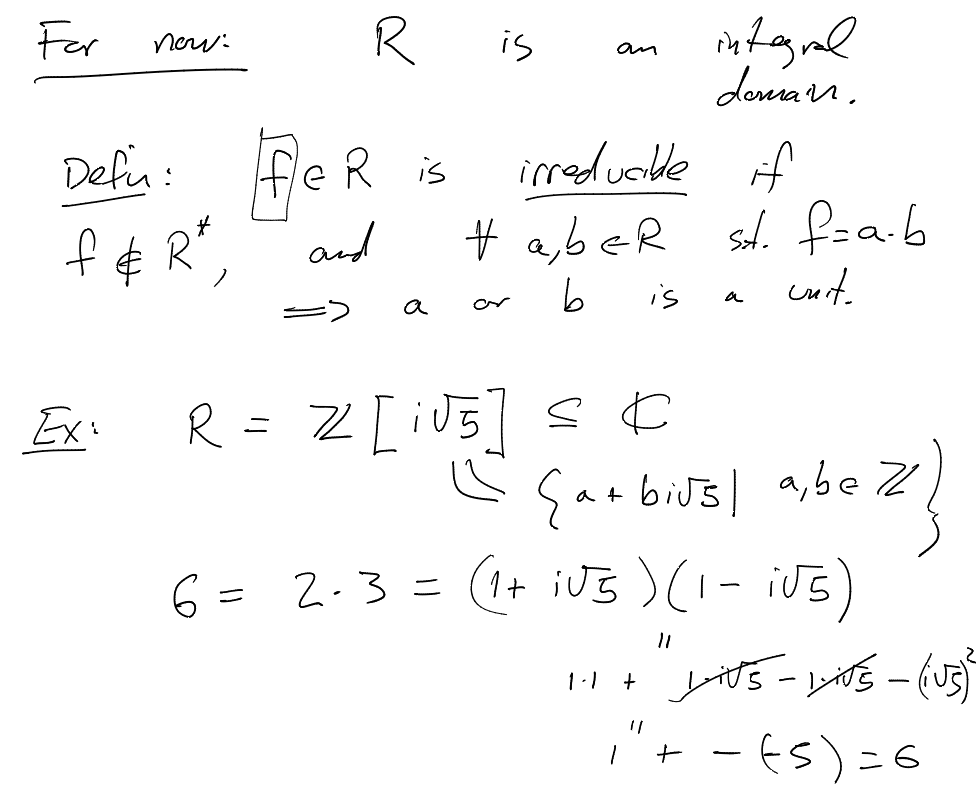 For now: R is an integral
domain.
Defn: f ∈ R is irreducible if
f ∉ R*, and ∀ a,b ∈ R st. f = a·b
⟹ a or b is a unit.
Ex: R = ℤ[i√5] ⊆ ℂ
{a + bi√5 | a,b ∈ ℤ}
6 = 2·3 = (1 + i√5)(1 - i√5)
"
1·1 + 1·i√5 - 1·i√5 - (i√5)²
"
1 + - (-5) = 6